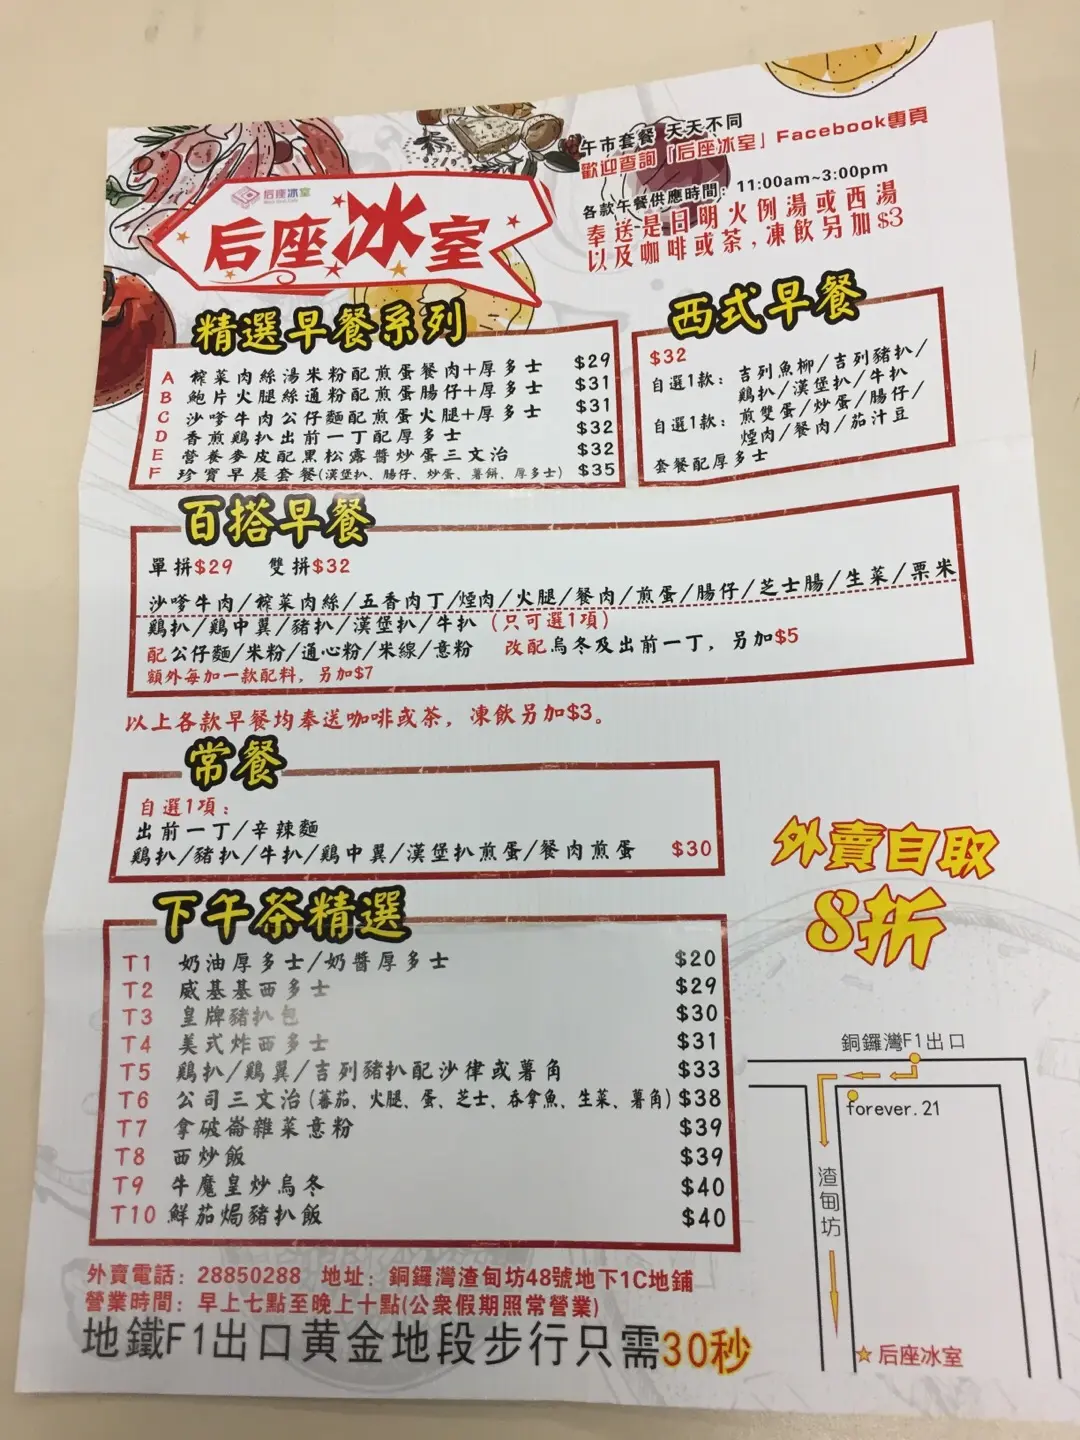 午市套餐 天天不同
歡迎查詢「后座冰室」Facebook專頁
各款午餐供應時間：11:00am~3:00pm
奉送是日明火例湯或西湯
以及咖啡或茶,凍飲另加$3
后座冰室
后座冰室
精選早餐系列
A 榨菜肉絲湯米粉配煎蛋餐肉+厚多士 $29
B 鮑片火腿絲通粉配煎蛋腸仔+厚多士 $31
C 沙嗲牛肉公仔麵配煎蛋火腿+厚多士 $31
D 香煎鷄扒出前一丁配厚多士 $32
E 營養麥皮配黑松露醬炒蛋三文治 $32
F 珍寶早晨套餐(漢堡扒、腸仔、炒蛋、薯餅、厚多士) $35
西式早餐
$32
自選1款：吉列魚柳/吉列豬扒/
鷄扒/漢堡扒/牛扒
自選1款：煎雙蛋/炒蛋/腸仔/
煙肉/餐肉/茄汁豆
套餐配厚多士
百搭早餐
單拼$29 雙拼$32
沙嗲牛肉/榨菜肉絲/五香肉丁/煙肉/火腿/餐肉/煎蛋/腸仔/芝士腸/生菜/粟米
鷄扒/鷄中翼/豬扒/漢堡扒/牛扒 (只可選1項)
配公仔麵/米粉/通心粉/米線/意粉 改配烏冬及出前一丁，另加$5
額外每加一款配料，另加$7
以上各款早餐均奉送咖啡或茶，凍飲另加$3。
常餐
自選1項：
出前一丁/辛辣麵
鷄扒/豬扒/牛扒/鷄中翼/漢堡扒煎蛋/餐肉煎蛋 $30
外賣自取
8折
下午茶精選
T1 奶油厚多士/奶醬厚多士 $20
T2 威基基西多士 $29
T3 皇牌豬扒包 $30
T4 美式炸西多士 $31
T5 鷄扒/鷄翼/吉列豬扒配沙律或薯角 $33
T6 公司三文治(蕃茄、火腿、蛋、芝士、吞拿魚、生菜、薯角) $38
T7 拿破崙雜菜意粉 $39
T8 西炒飯 $39
T9 牛魔皇炒烏冬 $40
T10 鮮茄焗豬扒飯 $40
銅鑼灣F1出口
forever.21
渣甸坊
后座冰室
外賣電話：28850288 地址：銅鑼灣渣甸坊48號地下1C地鋪
營業時間：早上七點至晚上十點(公衆假期照常營業)
地鐵F1出口黄金地段步行只需30秒